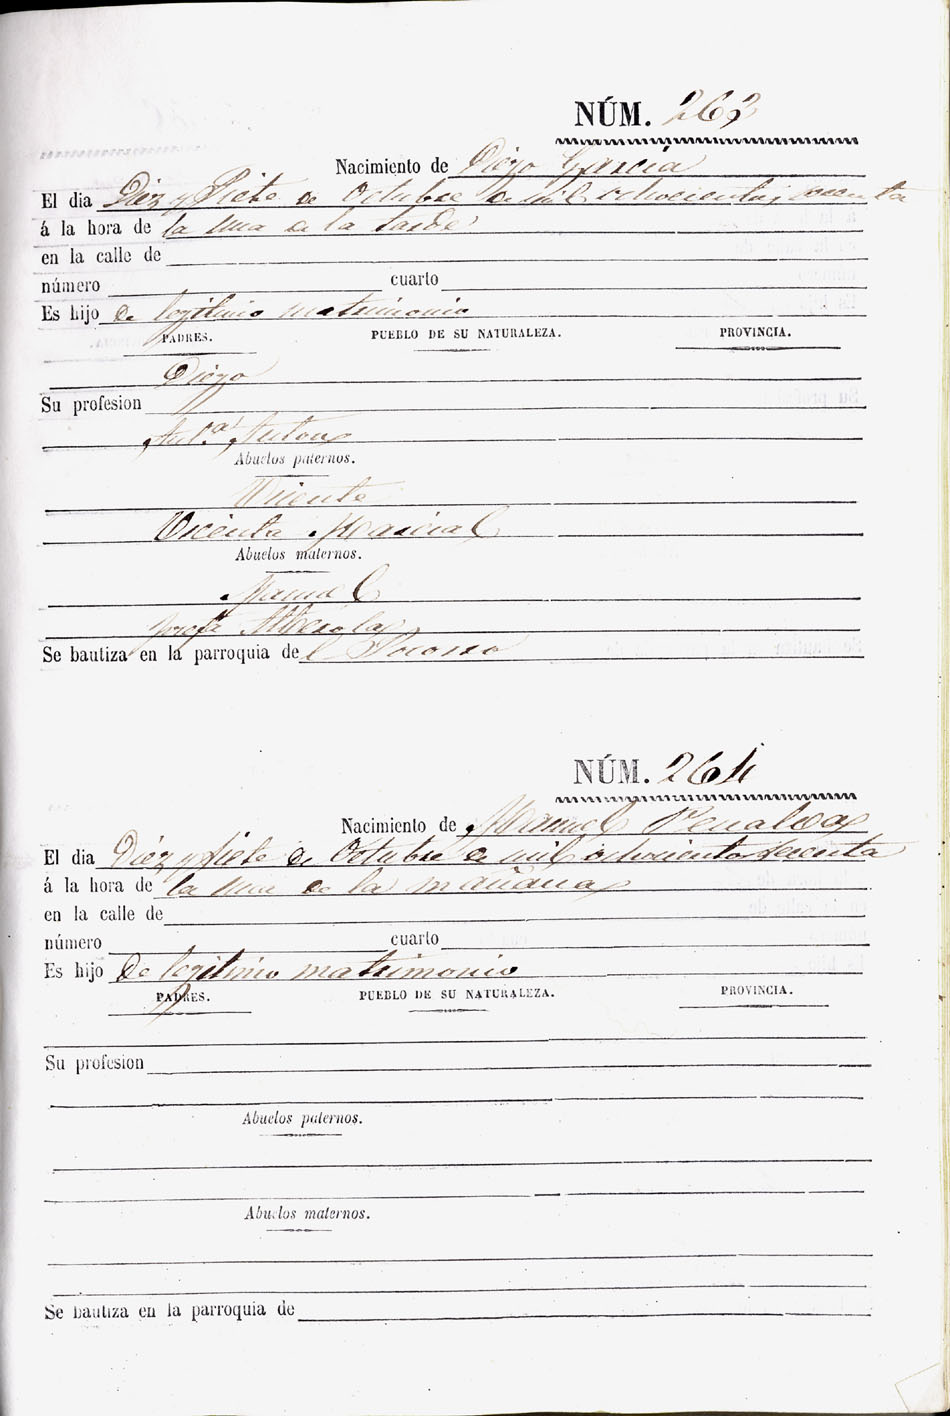 NÚM. 263
Nacimiento de Diego Garcia
El dia Diez y Siete de Octubre de mil ochocientos sesenta
á la hora de la una de la tarde
en la calle de
número cuarto
Es hijo de legitimo matrimonio
PADRES. PUEBLO DE SU NATURALEZA. PROVINCIA.
Diego
Su profesion
Ant.ª Anton
Abuelos paternos.
Vicente
Vicenta Marcial
Abuelos maternos.
Manuel
Josefa Alberola
Se bautiza en la parroquia del Socorro
NÚM. 264
Nacimiento de Manuel Penalva
El dia Diez y Siete de Octubre de mil ochociento sesenta
á la hora de la una de la mañana
en la calle de
número cuarto
Es hijo De legitimo matrimonio
PADRES. PUEBLO DE SU NATURALEZA. PROVINCIA.
Su profesion
Abuelos paternos.
Abuelos maternos.
Se bautiza en la parroquia de